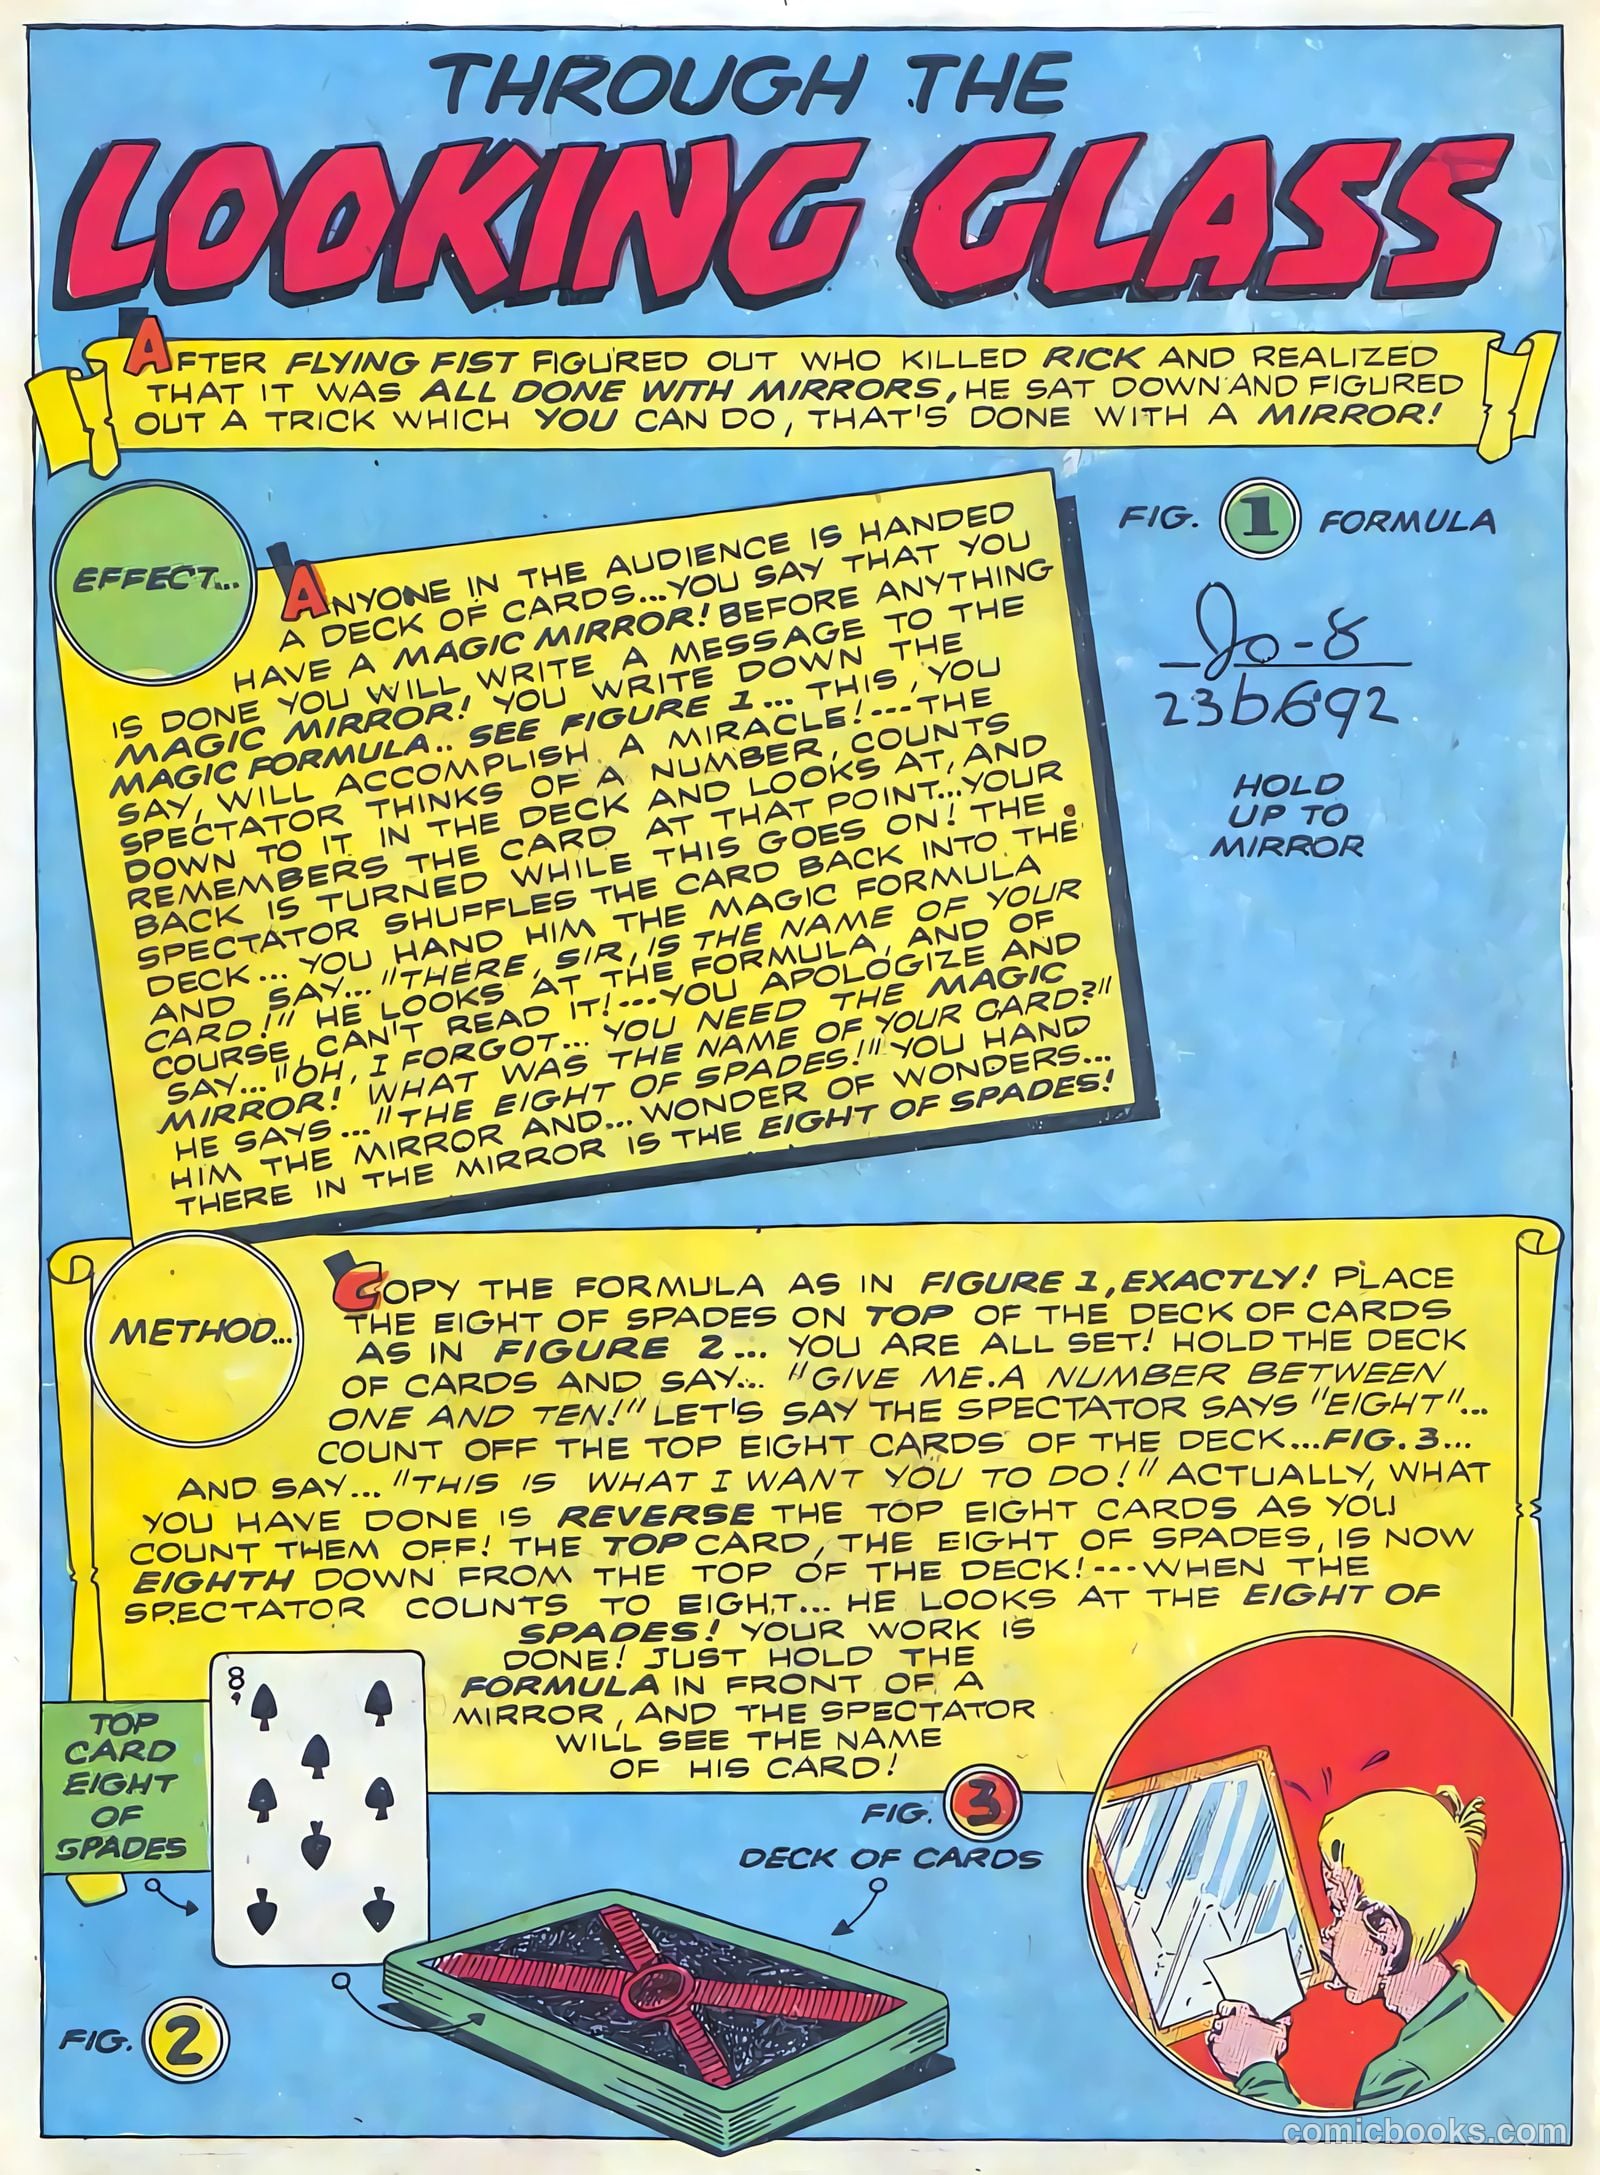 THROUGH THE
LOOKING GLASS
AFTER FLYING FIST FIGURED OUT WHO KILLED RICK AND REALIZED
THAT IT WAS ALL DONE WITH MIRRORS, HE SAT DOWN AND FIGURED
OUT A TRICK WHICH YOU CAN DO, THAT'S DONE WITH A MIRROR!
EFFECT...
ANYONE IN THE AUDIENCE IS HANDED
A DECK OF CARDS...YOU SAY THAT YOU
HAVE A MAGIC MIRROR! BEFORE ANYTHING
IS DONE YOU WILL WRITE A MESSAGE TO THE
MAGIC MIRROR! YOU WRITE DOWN THE
MAGIC FORMULA.. SEE FIGURE 1... THIS, YOU
SAY, WILL ACCOMPLISH A MIRACLE!---THE
SPECTATOR THINKS OF A NUMBER, COUNTS
DOWN TO IT IN THE DECK AND LOOKS AT, AND
REMEMBERS THE CARD AT THAT POINT...YOUR
BACK IS TURNED WHILE THIS GOES ON! THE
SPECTATOR SHUFFLES THE CARD BACK INTO THE
DECK... YOU HAND HIM THE MAGIC FORMULA
AND SAY... "THERE, SIR, IS THE NAME OF YOUR
CARD!" HE LOOKS AT THE FORMULA, AND OF
COURSE, CAN'T READ IT!---YOU APOLOGIZE AND
SAY..."OH, I FORGOT... YOU NEED THE MAGIC
MIRROR! WHAT WAS THE NAME OF YOUR CARD?"
HE SAYS... "THE EIGHT OF SPADES!" YOU HAND
HIM THE MIRROR AND... WONDER OF WONDERS...
THERE IN THE MIRROR IS THE EIGHT OF SPADES!
FIG. 1 FORMULA
Jo-8
23b692
HOLD
UP TO
MIRROR
METHOD...
COPY THE FORMULA AS IN FIGURE 1, EXACTLY! PLACE
THE EIGHT OF SPADES ON TOP OF THE DECK OF CARDS
AS IN FIGURE 2... YOU ARE ALL SET! HOLD THE DECK
OF CARDS AND SAY... "GIVE ME A NUMBER BETWEEN
ONE AND TEN!" LET'S SAY THE SPECTATOR SAYS "EIGHT"...
COUNT OFF THE TOP EIGHT CARDS OF THE DECK...FIG. 3...
AND SAY... "THIS IS WHAT I WANT YOU TO DO!" ACTUALLY, WHAT
YOU HAVE DONE IS REVERSE THE TOP EIGHT CARDS AS YOU
COUNT THEM OFF! THE TOP CARD, THE EIGHT OF SPADES, IS NOW
EIGHTH DOWN FROM THE TOP OF THE DECK!---WHEN THE
SPECTATOR COUNTS TO EIGHT... HE LOOKS AT THE EIGHT OF
SPADES! YOUR WORK IS
DONE! JUST HOLD THE
FORMULA IN FRONT OF A
MIRROR, AND THE SPECTATOR
WILL SEE THE NAME
OF HIS CARD!
TOP
CARD
EIGHT
OF
SPADES
8
FIG. 2
FIG. 3
DECK OF CARDS
comicbooks.com